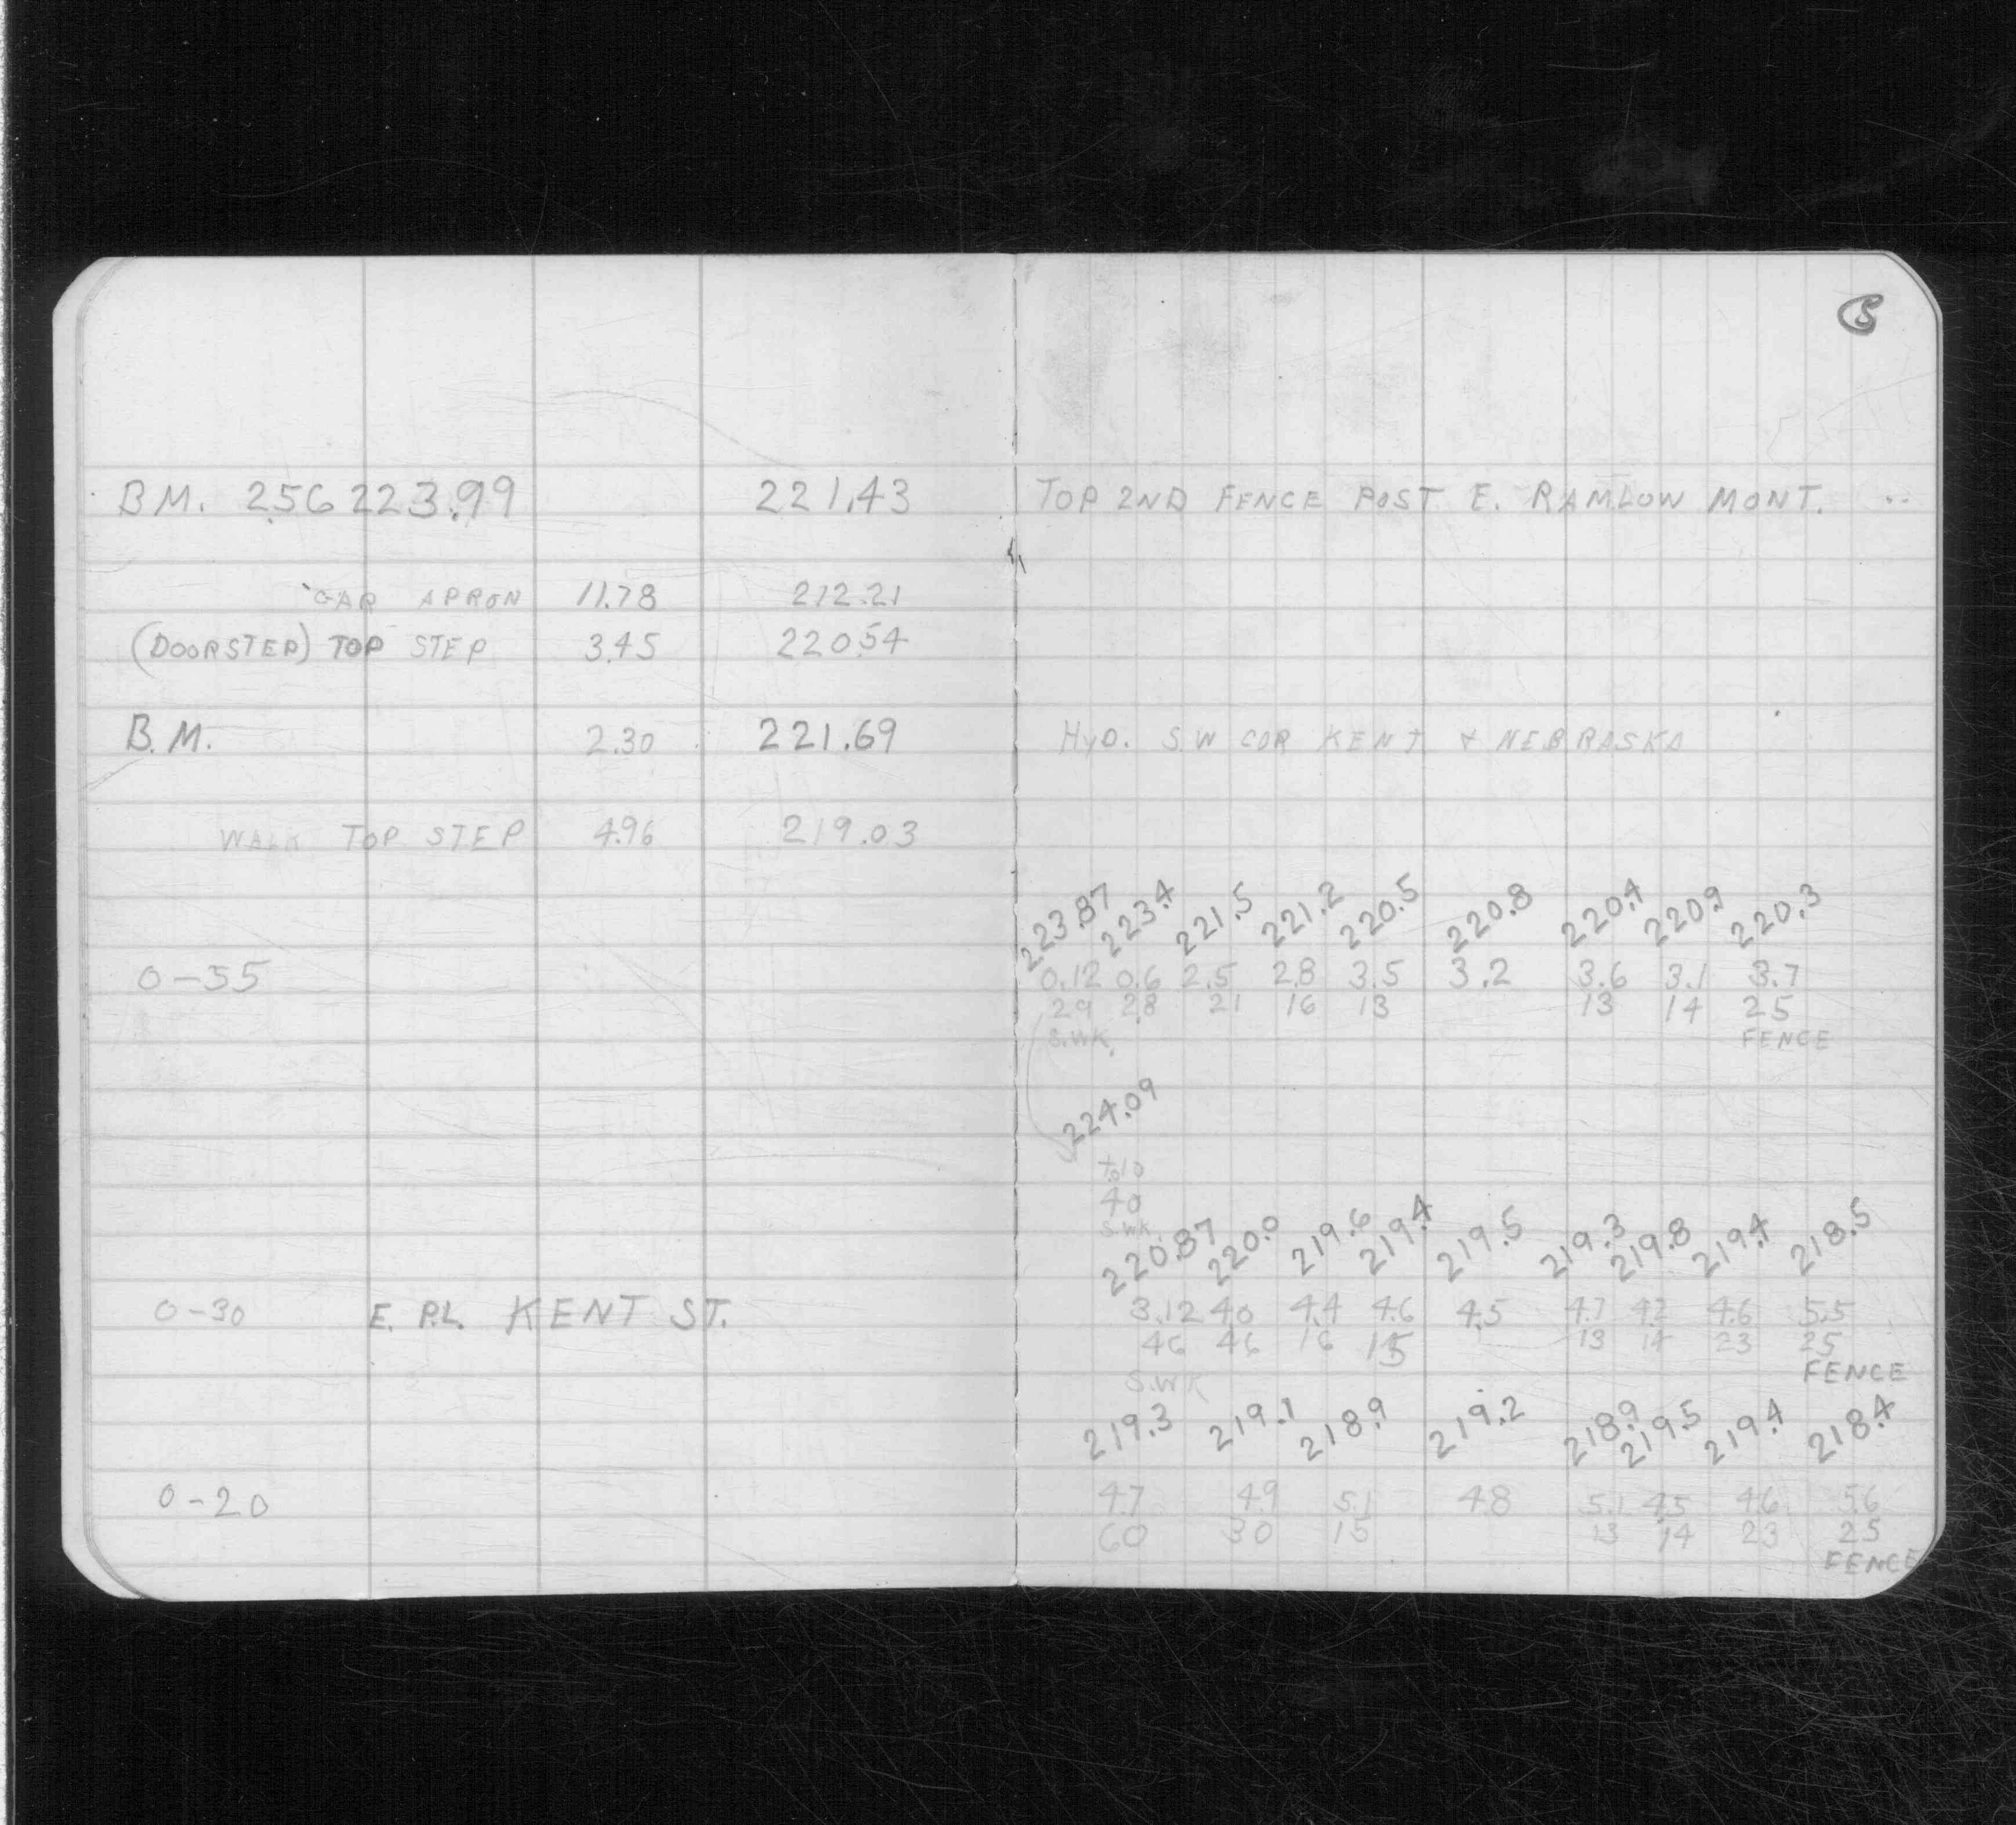 5
B.M. 2.56 223.99 221.43 TOP 2ND FENCE POST E. RAMLOW MONT.
GAR APRON 11.78 212.21
(DOORSTEP) TOP STEP 3.45 220.54
B.M. 2.30 221.69 HYD. S.W COR KENT & NEBRASKA
WALK TOP STEP 4.96 219.03
223.87 223.4 221.5 221.2 220.5 220.8 220.4 220.9 220.3
0-35 0.12 0.6 2.5 2.8 3.5 3.2 3.6 3.1 3.7
29 28 21 16 13 13 14 25
S.WK. FENCE
224.09
+0.10
40
S.WK.
220.87 220.0 219.6 219.4 219.5 219.3 219.8 219.4 218.5
0-30 E. P.L. KENT ST. 3.12 4.0 4.4 4.6 4.5 4.7 4.2 4.6 5.5
46 46 16 15 13 14 23 25
S.WK FENCE
219.3 219.1 218.9 219.2 218.9 219.5 219.4 218.4
0-20 4.7 4.9 5.1 4.8 5.1 4.5 4.6 5.6
60 30 15 13 14 23 25
FENCE